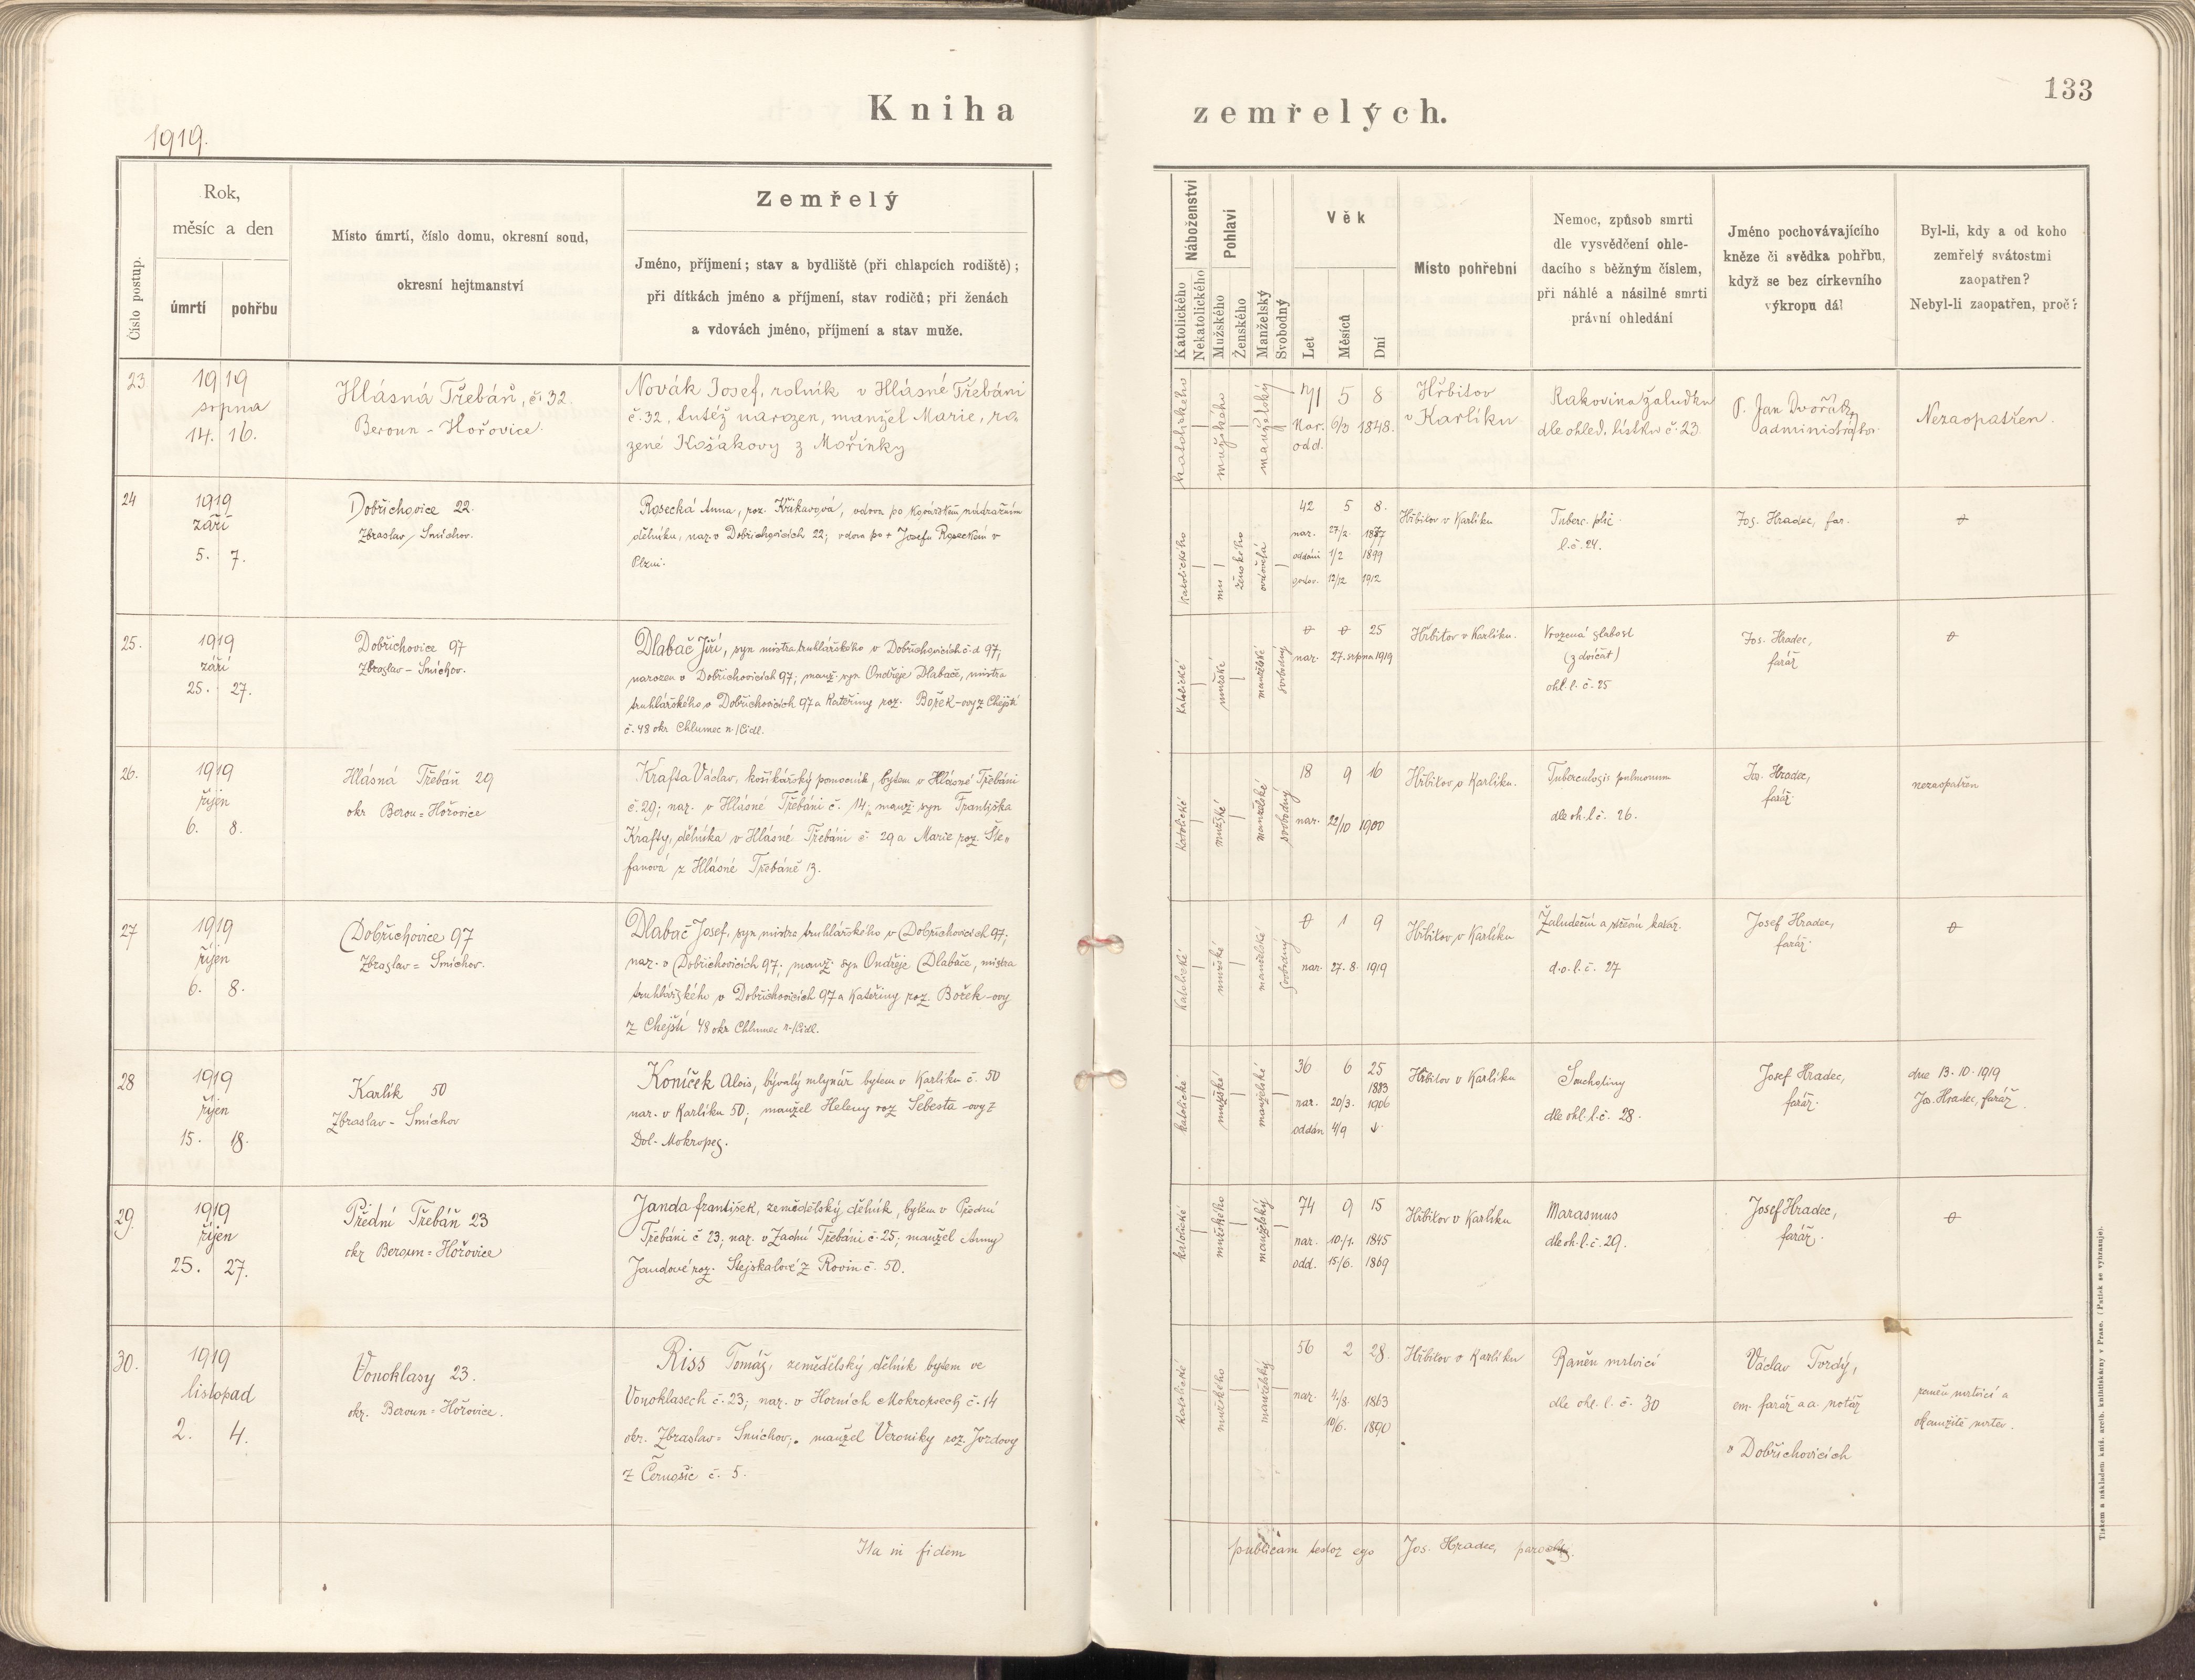 133
Kniha zemřelých.
1919.
Číslo postup.
Rok,
měsíc a den
úmrtí
pohřbu
Místo úmrtí, číslo domu, okresní soud,
okresní hejtmanství
Zemřelý
Jméno, příjmení; stav a bydliště (při chlapcích rodiště);
při dítkách jméno a příjmení, stav rodičů; při ženách
a vdovách jméno, příjmení a stav muže.
Náboženství
Katolického
Nekatolického
Pohlaví
Mužského
Ženského
Manželský
Svobodný
Věk
Let
Měsíců
Dní
Místo pohřební
Nemoc, způsob smrti
dle vysvědčení ohle-
dacího s běžným číslem,
při náhlé a násilné smrti
právní ohledání
Jméno pochovávajícího
kněze či svědka pohřbu,
když se bez církevního
výkropu dál
Byl-li, kdy a od koho
zemřelý svátostmi
zaopatřen?
Nebyl-li zaopatřen, proč?
23
1919
srpna
14. 16.
Hlásná Třebáň, č. 32.
Beroun - Hořovice.
Novák Josef, rolník v Hlásné Třebáni
č. 32, tutéž narozen, manžel Marie, ro-
zené Košákovy z Mořinky
katolického
mužského
manželský
71 5 8
Nar. 6/3 1848.
odd.
Hřbitov
v Karlíku
Rakovina žaludku
dle ohled. lístku č. 23.
P. Jan Dvořák,
administrátor.
Nezaopatřen.
24
1919
září
5. 7.
Dobřichovice 22.
Zbraslav / Smíchov.
Rosecká Anna, roz. Křikavová, vdova po nádražním
dělníku, nar. v Dobřichovicích 22; vdova po + Josefu Roseckém v
Plzni.
katolického
mu
ženského
ovdovělá
42 5 8.
nar. 27/2. 1877
oddáni 1/2 1899
ovdov. 12/12 1912
Hřbitov v Karlíku
Tuberc. plic
l. č. 24.
Jos. Hradec, far.
25.
1919
září
25. 27.
Dobřichovice 97
Zbraslav - Smíchov.
Dlabač Jiří, syn mistra truhlářského v Dobřichovicích č. d 97,
narozen v Dobřichovicích 97; manž. syn Ondřeje Dlabače, mistra
truhlářského v Dobřichovicích 97 a Kateřiny roz. Bořek-ovy z Chejští
č. 48 okr Chlumec n./Cidl.
katolické
mužské
manželské
svobodný
25
nar. 27. srpna 1919
Hřbitov v Karlíku.
Vrozená slabost
(z dvíčat)
ohl. l. č. 25
Jos. Hradec,
farář
26.
1919
říjen
6. 8.
Hlásná Třebáň 29
okr Beroun = Hořovice
Krafta Václav, košíkářský pomocník, bytem v Hlásné Třebáni
č. 29; nar. v Hlásné Třebáni č. 14; manž. syn Františka
Krafty, dělníka v Hlásné Třebáni č. 29 a Marie roz. Šte-
fanová z Hlásné Třebáně 13.
katolické
mužské
manželské
svobodný
18 9 16
nar. 22/10 1900
Hřbitov v Karlíku.
Tuberculosis pulmonum
dle oh. l. č. 26.
Jos. Hradec,
farář.
nezaopatřen
27
1919
říjen
6. 8.
Dobřichovice 97
Zbraslav = Smíchov.
Dlabač Josef, syn mistra truhlářského v Dobřichovicích 97;
nar. v Dobřichovicích 97; manž. syn Ondřeje Dlabače, mistra
truhlářského v Dobřichovicích 97 a Kateřiny roz. Bořek-ovy
z Chejští 48 okr Chlumec n./Cidl.
katolické
mužské
manželské
svobodný
1 9
nar. 27. 8. 1919
Hřbitov v Karlíku
Žaludeční a střevní katar.
d. o. l. č. 27
Josef Hradec,
farář.
28
1919
říjen
15. 18.
Karlík 50
Zbraslav - Smíchov
Koníček Alois, bývalý mlynář bytem v Karlíku č. 50
nar. v Karlíku 50; manžel Heleny roz Šebesta-ovy z
Dol. Mokropes.
katolické
mužské
manželské
36 6 25
1883
nar. 20/3. 1906
oddán 4/9
Hřbitov v Karlíku
Souchotiny
dle ohl. l. č. 28.
Josef Hradec,
farář.
dne 13. 10. 1919
Jos. Hradec, farář.
29.
1919
říjen
25. 27.
Přední Třebáň 23
okr Beroun = Hořovice
Janda František, zemědělský dělník, bytem v Přední
Třebáni č 23; nar. v Zadní Třebáni č. 25; manžel Anny
Jandové roz. Stejskalové z Rovin č. 50.
katolické
mužského
manželský
74 9 15
nar. 10./1. 1845
odd. 15/6. 1869
Hřbitov v Karlíku
Marasmus
dle oh. l. č. 29.
Josef Hradec,
farář.
30.
1919
listopad
2. 4.
Vonoklasy 23.
okr. Beroun = Hořovice.
Riss Tomáš, zemědělský dělník bytem ve
Vonoklasech č. 23; nar. v Horních Mokropsech č. 14
okr. Zbraslav = Smíchov; manžel Veroniky roz. Jordovy
z Černošic č. 5.
katolické
mužského
manželský
56 2 28.
nar. 4./8. 1863
10/6. 1890
Hřbitov v Karlíku
Raněn mrtvicí
dle ohl. l. č. 30
Václav Tvrdý,
em. farář a a. notář
v Dobřichovicích
raněn mrtvicí a
okamžitě mrtev.
Ita in fidem publicam testor ego Jos. Hradec, parochus.
Tiskem a nákladem kníž. arcib. knihtiskárny v Praze. (Patisk se vyhrazuje).